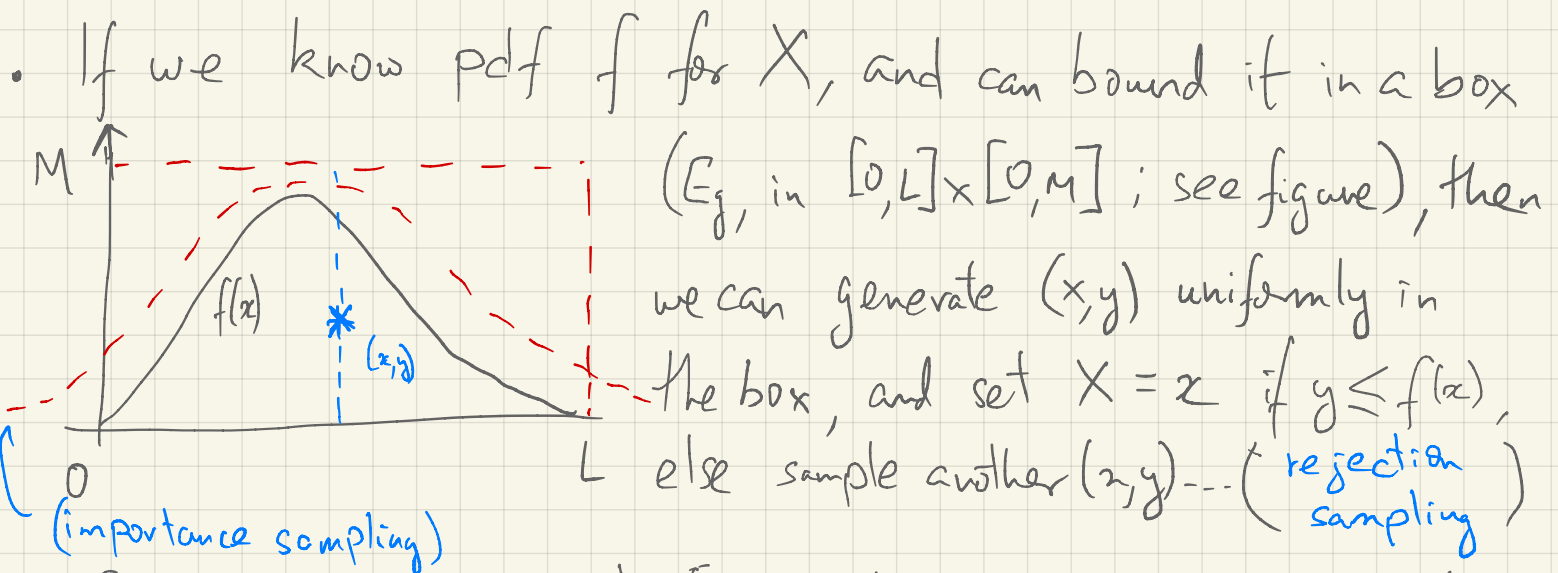 . If we know pdf f for X, and can bound it in a box
M
(Eg, in [0,L]×[0,M] ; see figure), then
f(x)
we can generate (x,y) uniformly in
(x,y)
the box, and set X = x if y ≤ f(x),
0
L
else sample another (x,y)---- (rejection
sampling)
(importance sampling)